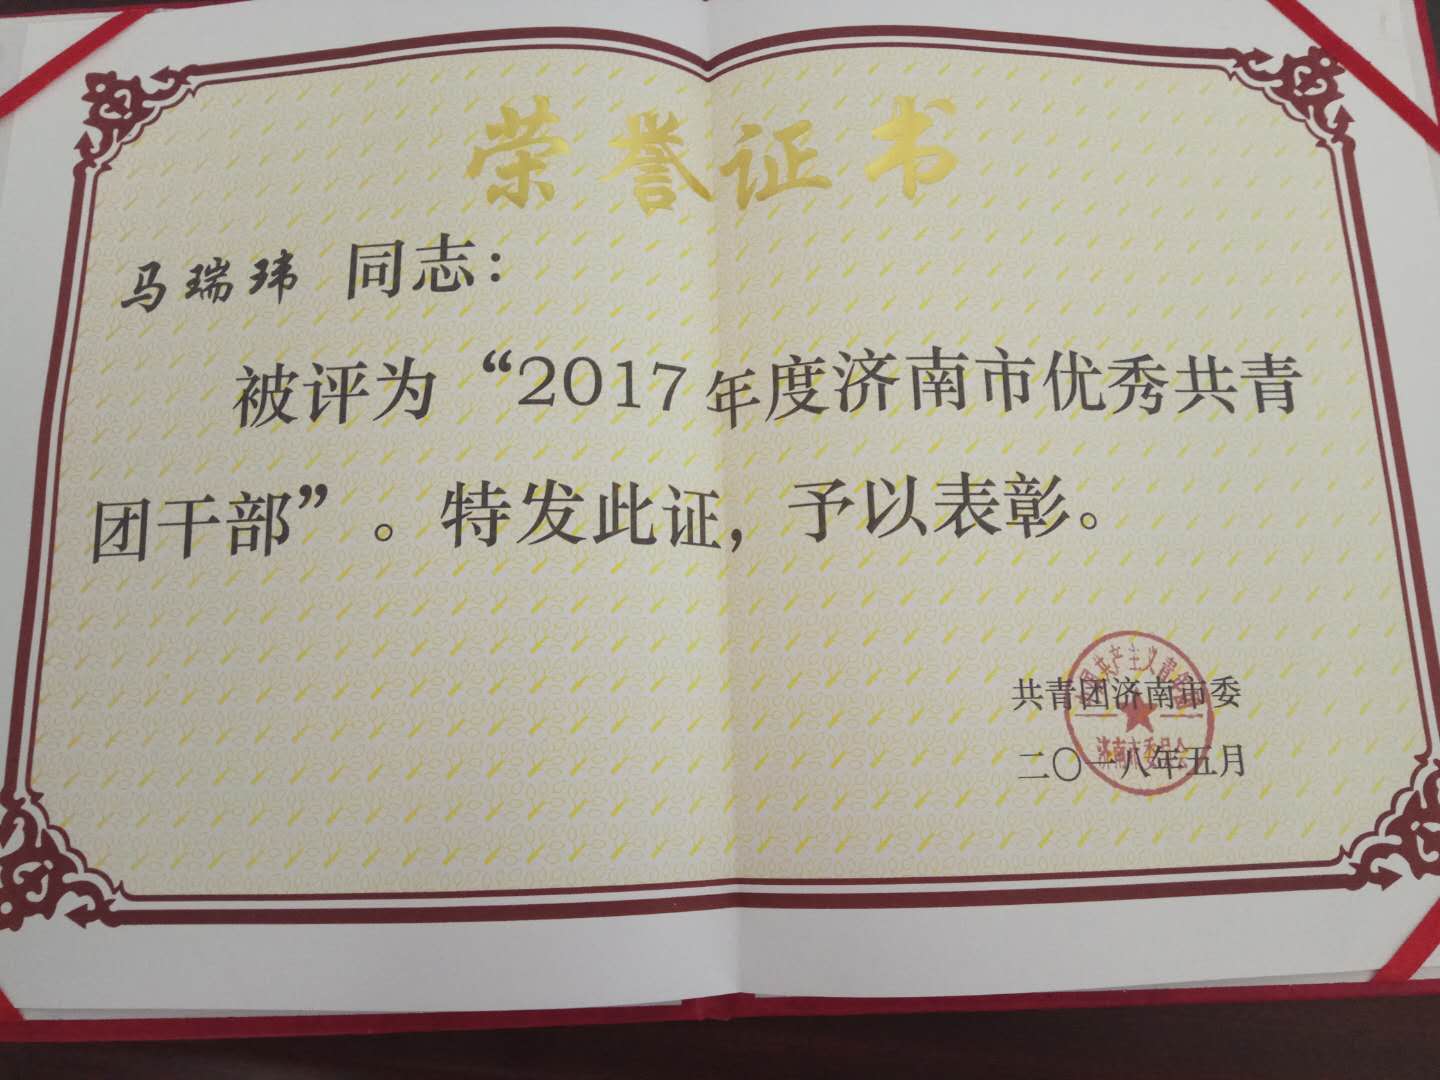 荣誉证书
马瑞玮 同志：
被评为“2017年度济南市优秀共青
团干部”。特发此证，予以表彰。
共青团济南市委
二〇一八年五月
共产主义青
济南市委员会